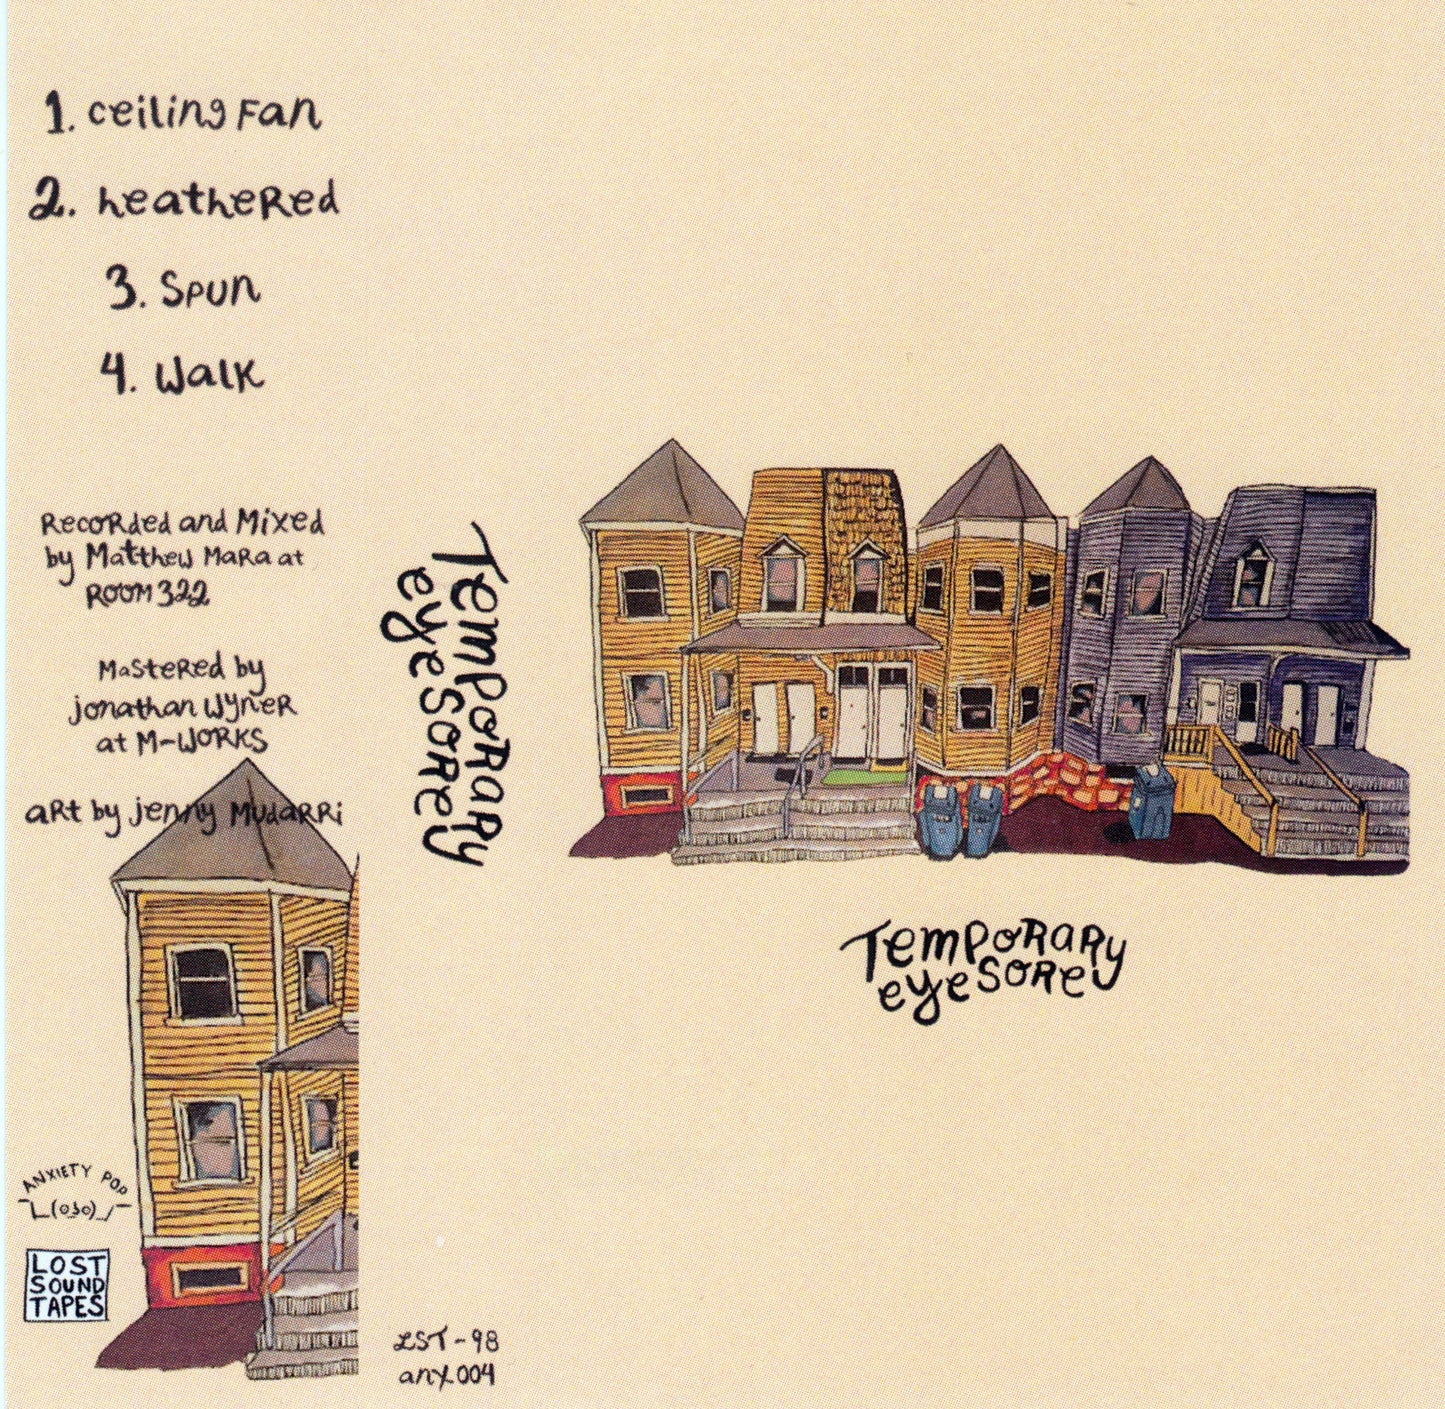 1. ceiling Fan
2. heathered
3. Spun
4. Walk
Recorded and Mixed
by Matthew Mara at
ROOM 322
Mastered by
jonathan Wyner
at M-WORKS
art by jenny Mudarri
ANXIETY POP
¯\_(ojo)_/¯
LOST
SOUND
TAPES
Temporary
eyesore
LST-98
anx.004
Temporary
eyesore